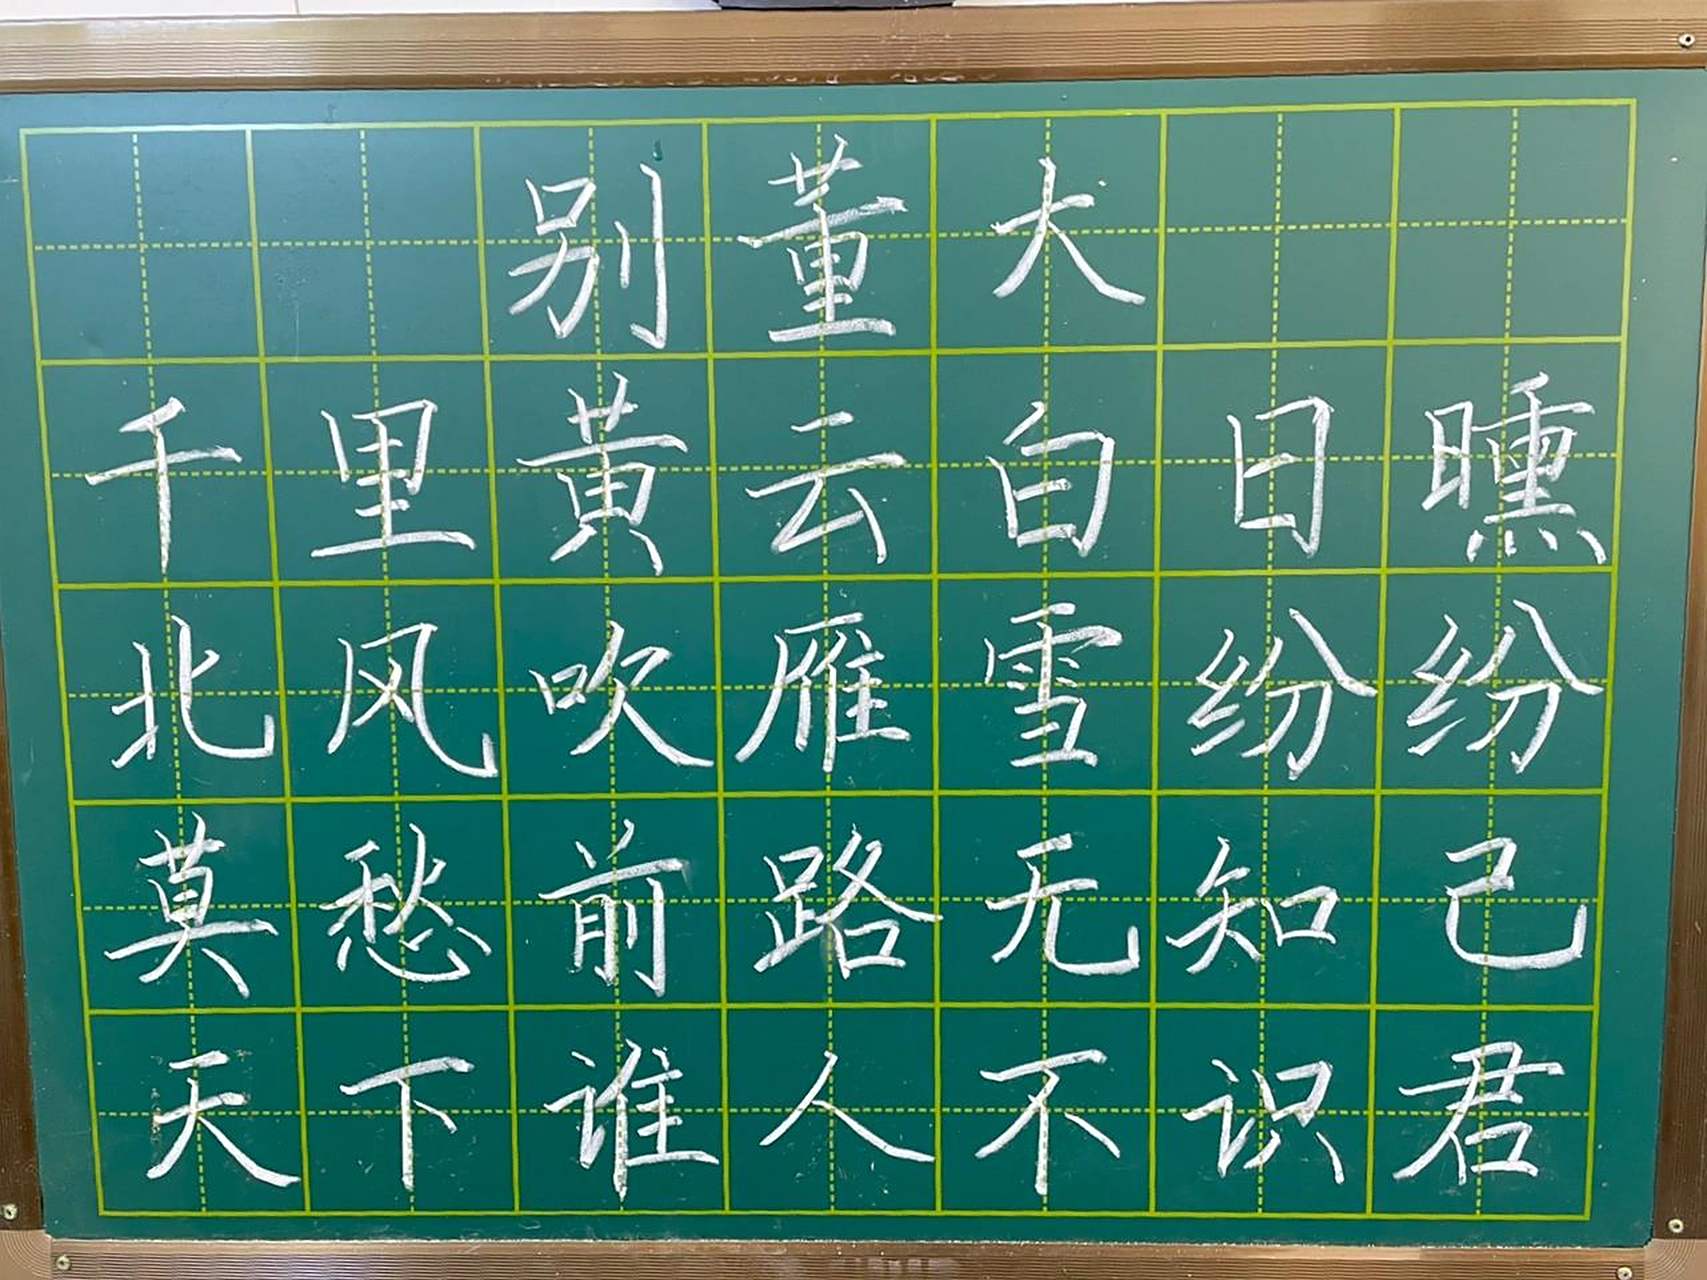 别董大
千里黄云白日曛
北风吹雁雪纷纷
莫愁前路无知己
天下谁人不识君